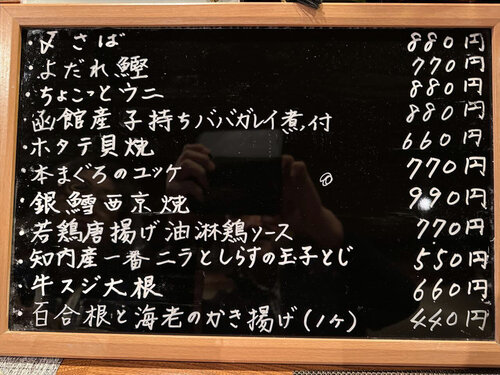 ・〆さば 880円
・よだれ鰹 770円
・ちょこっとウニ 880円
・函館産子持ちババガレイ煮付 880円
・ホタテ貝焼 660円
・本まぐろのユッケ 770円
・銀鱈西京焼 990円
・若鶏唐揚げ油淋鶏ソース 770円
・知内産一番ニラとしらすの玉子とじ 550円
・牛スジ大根 660円
・百合根と海老のかき揚げ(1ヶ) 440円